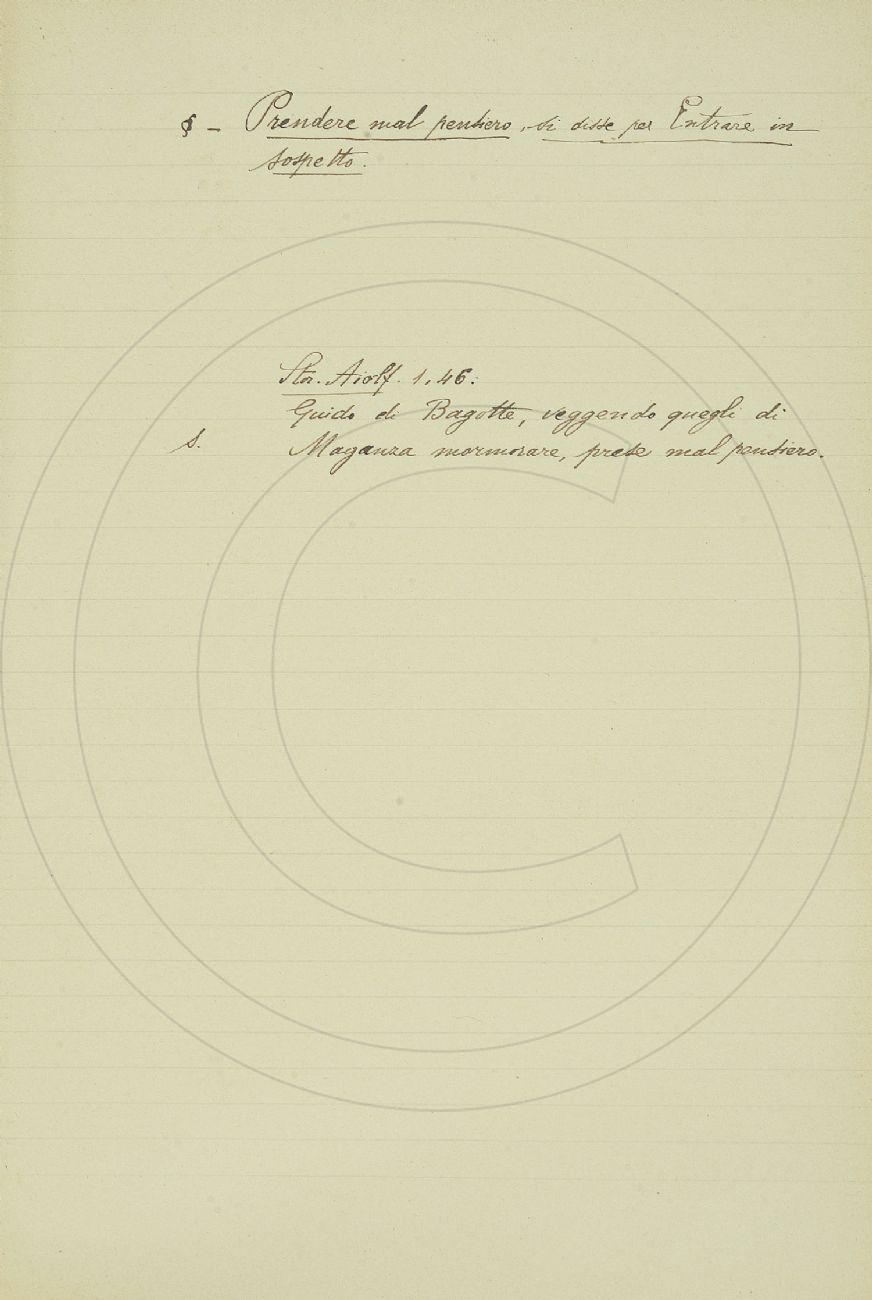 § - Prendere mal pensiero, si disse per Entrare in
sospetto.
Stor. Aiolf. 1. 46.
Guido di Bagotte, veggendo quegli di
S. Maganza mormorare, prese mal pensiero.